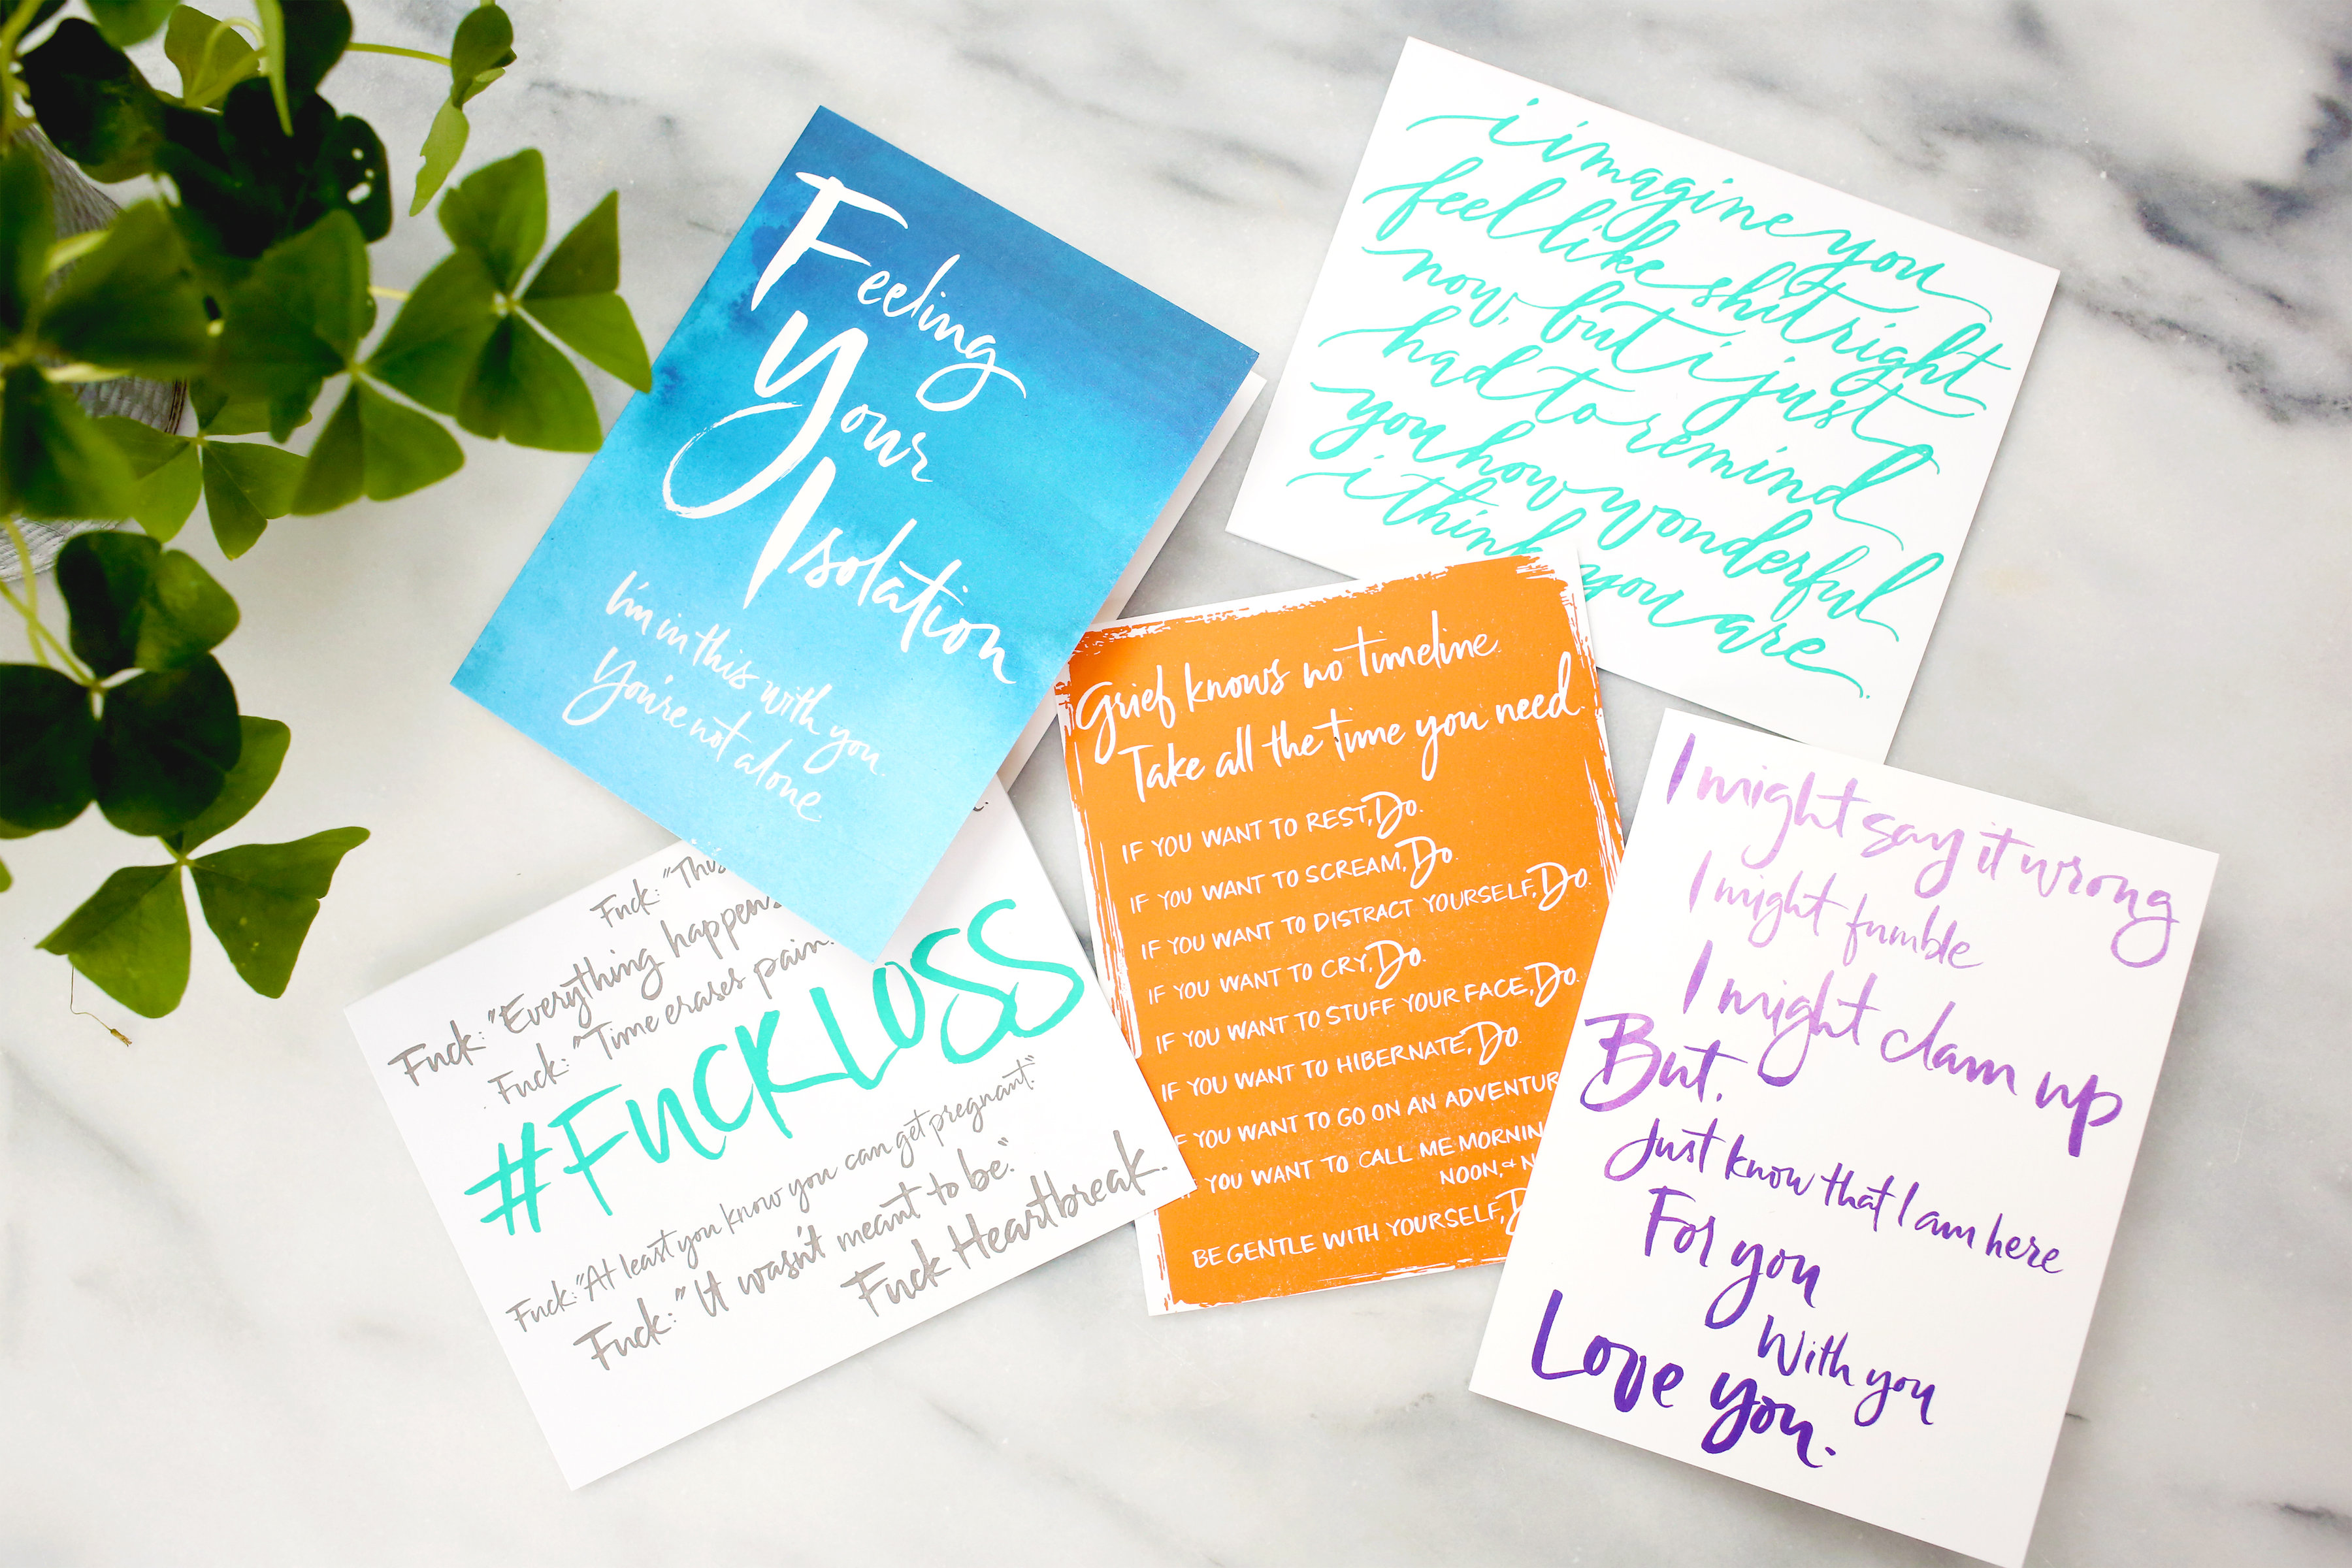 Feeling
Your
Isolation
I'm in this with you.
You're not alone.
i imagine you
feel like shit right
now, but i just
had to remind
you how wonderful
i think you are.
Grief knows no timeline.
Take all the time you need.
IF YOU WANT TO REST, Do.
IF YOU WANT TO SCREAM, Do.
IF YOU WANT TO DISTRACT YOURSELF, Do.
IF YOU WANT TO CRY, Do.
IF YOU WANT TO STUFF YOUR FACE, Do.
IF YOU WANT TO HIBERNATE, Do.
IF YOU WANT TO GO ON AN ADVENTUR
YOU WANT TO CALL ME MORNIN
NOON, &
BE GENTLE WITH YOURSELF,
Fuck: "This
Fuck: "Everything happens
Fuck: "Time erases pain.
#FUCKLOSS
Fuck: "At least you know you can get pregnant."
Fuck: "It wasn't meant to be."
Fuck Heartbreak.
I might say it wrong
I might fumble
I might clam up
But,
Just know that I am here
For you
With you
Love you.